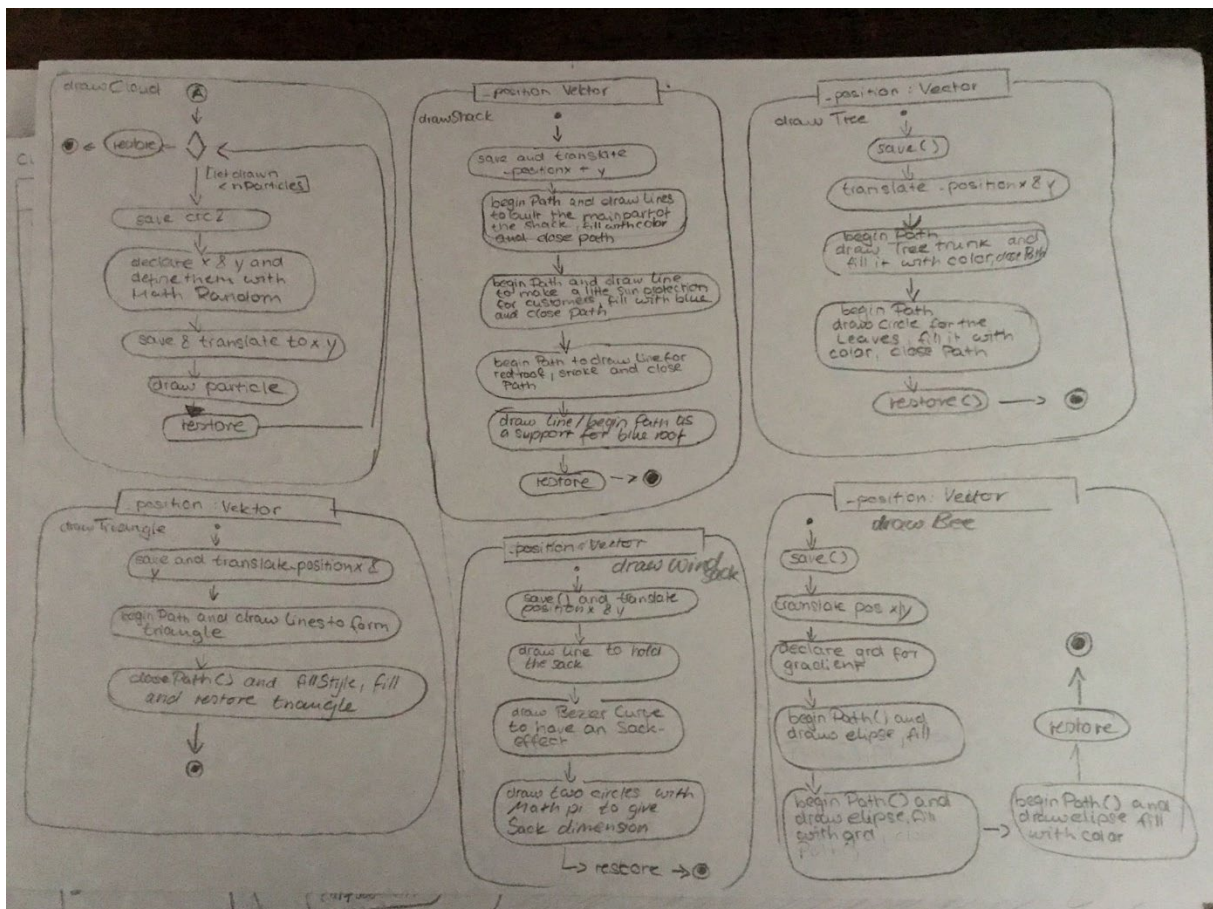 drawCloud
A
restore
[let drawn
< nParticles]
save crc2
declare x & y and
define them with
Math Random
save & translate to x y
draw particle
restore
_position Vektor
drawShack
save and translate
_positionx + y
begin Path and draw Lines
to built the main part of
the shack, fill with color
and close path
begin Path and draw Line
to make a little sun protection
for customers, fill with blue
and close path
begin Path to draw Line for
red roof, stroke and close
Path
draw Line/begin Path as
a support for blue roof
restore
_position: Vector
draw Tree
save()
translate _position x & y
begin Path
draw Tree trunk and
fill it with color, close Path
begin Path
draw Circle for the
Leaves, fill it with
color, close Path
restore()
_position: Vektor
drawTriangle
save and translate_positionx &
y
beginPath and draw lines to form
triangle
closePath() and fillStyle, fill
and restore triangle
_position: Vector
draw Wind
sack
save() and translate
position x & y
draw Line to hold
the sack
draw Bezier Curve
to have an Sack-
effect
draw two circles with
Math pi to give
Sack dimension
restore
_position: Vector
draw Bee
save()
translate pos x/y
declare grd for
gradient
begin Path() and
draw elipse, fill
begin Path() and
draw elipse, fill
with grd
begin Path() and
draw elipse fill
with color
restore